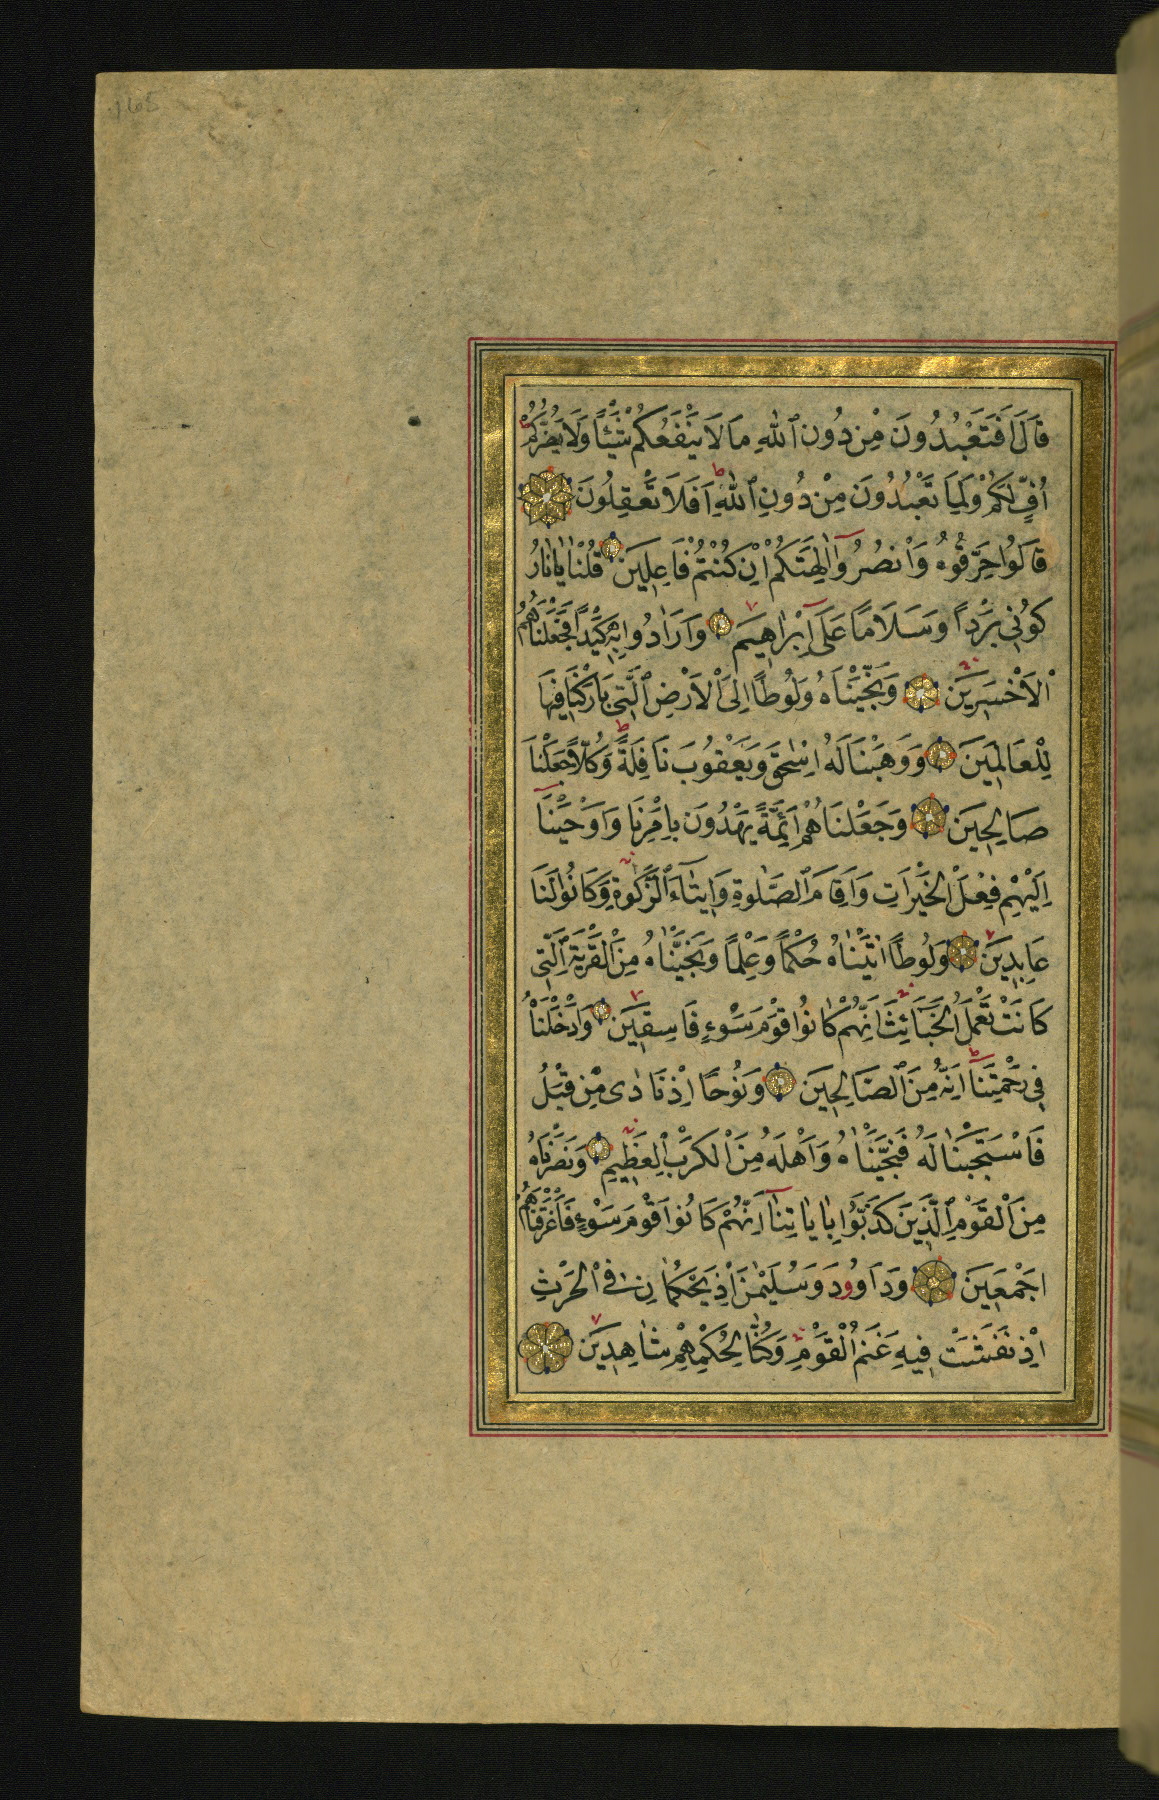 165
قَالَ اَفَتَعْبُدُونَ مِنْ دُونِ ٱللّٰهِ مَا لَا يَنْفَعُكُمْ شَيْـًٔا وَلَا يَضُرُّكُمْ ط
اُفٍّ لَكُمْ وَلِمَا تَعْبُدُونَ مِنْ دُونِ ٱللّٰهِ ط اَفَلَا تَعْقِلُونَ
قَالُوا حَرِّقُوهُ وَانْصُرُوٓا اٰلِهَتَكُمْ اِنْ كُنْتُمْ فَاعِلِينَ قُلْنَا يَا نَارُ
كُونِي بَرْدًا وَسَلَامًا عَلٰٓى اِبْرَاهِيمَ لا وَاَرَادُوا بِهِ كَيْدًا فَجَعَلْنَاهُمُ
الْاَخْسَرِينَ ج وَنَجَّيْنَاهُ وَلُوطًا اِلَى الْاَرْضِ ٱلَّتِي بَارَكْنَا فِيهَا
لِلْعَالَمِينَ وَوَهَبْنَا لَهُ اِسْحٰقَ وَيَعْقُوبَ نَافِلَةً ط وَكُلًّا جَعَلْنَا
صَالِحِينَ وَجَعَلْنَاهُمْ اَئِمَّةً يَهْدُونَ بِاَمْرِنَا وَاَوْحَيْنَآ
اِلَيْهِمْ فِعْلَ الْخَيْرَاتِ وَاِقَامَ ٱلصَّلٰوةِ وَاِيتَآءَ ٱلزَّكٰوةِ ج وَكَانُوا لَنَا
عَابِدِينَ لا وَلُوطًا اٰتَيْنَاهُ حُكْمًا وَعِلْمًا وَنَجَّيْنَاهُ مِنَ الْقَرْيَةِ ٱلَّتِي
كَانَتْ تَعْمَلُ الْخَبَآئِثَ ط اِنَّهُمْ كَانُوا قَوْمَ سَوْءٍ فَاسِقِينَ لا وَاَدْخَلْنَاهُ
فِي رَحْمَتِنَا ط اِنَّهُ مِنَ ٱلصَّالِحِينَ وَنُوحًا اِذْ نَادٰى مِنْ قَبْلُ
فَاسْتَجَبْنَا لَهُ فَنَجَّيْنَاهُ وَاَهْلَهُ مِنَ الْكَرْبِ الْعَظِيمِ ج وَنَصَرْنَاهُ
مِنَ الْقَوْمِ ٱلَّذِينَ كَذَّبُوا بِاٰيَاتِنَا ط اِنَّهُمْ كَانُوا قَوْمَ سَوْءٍ فَاَغْرَقْنَاهُمْ
اَجْمَعِينَ وَدَاوُودَ وَسُلَيْمٰنَ اِذْ يَحْكُمَانِ فِي الْحَرْثِ
اِذْ نَفَشَتْ فِيهِ غَنَمُ الْقَوْمِ ج وَكُنَّا لِحُكْمِهِمْ شَاهِدِينَ لا